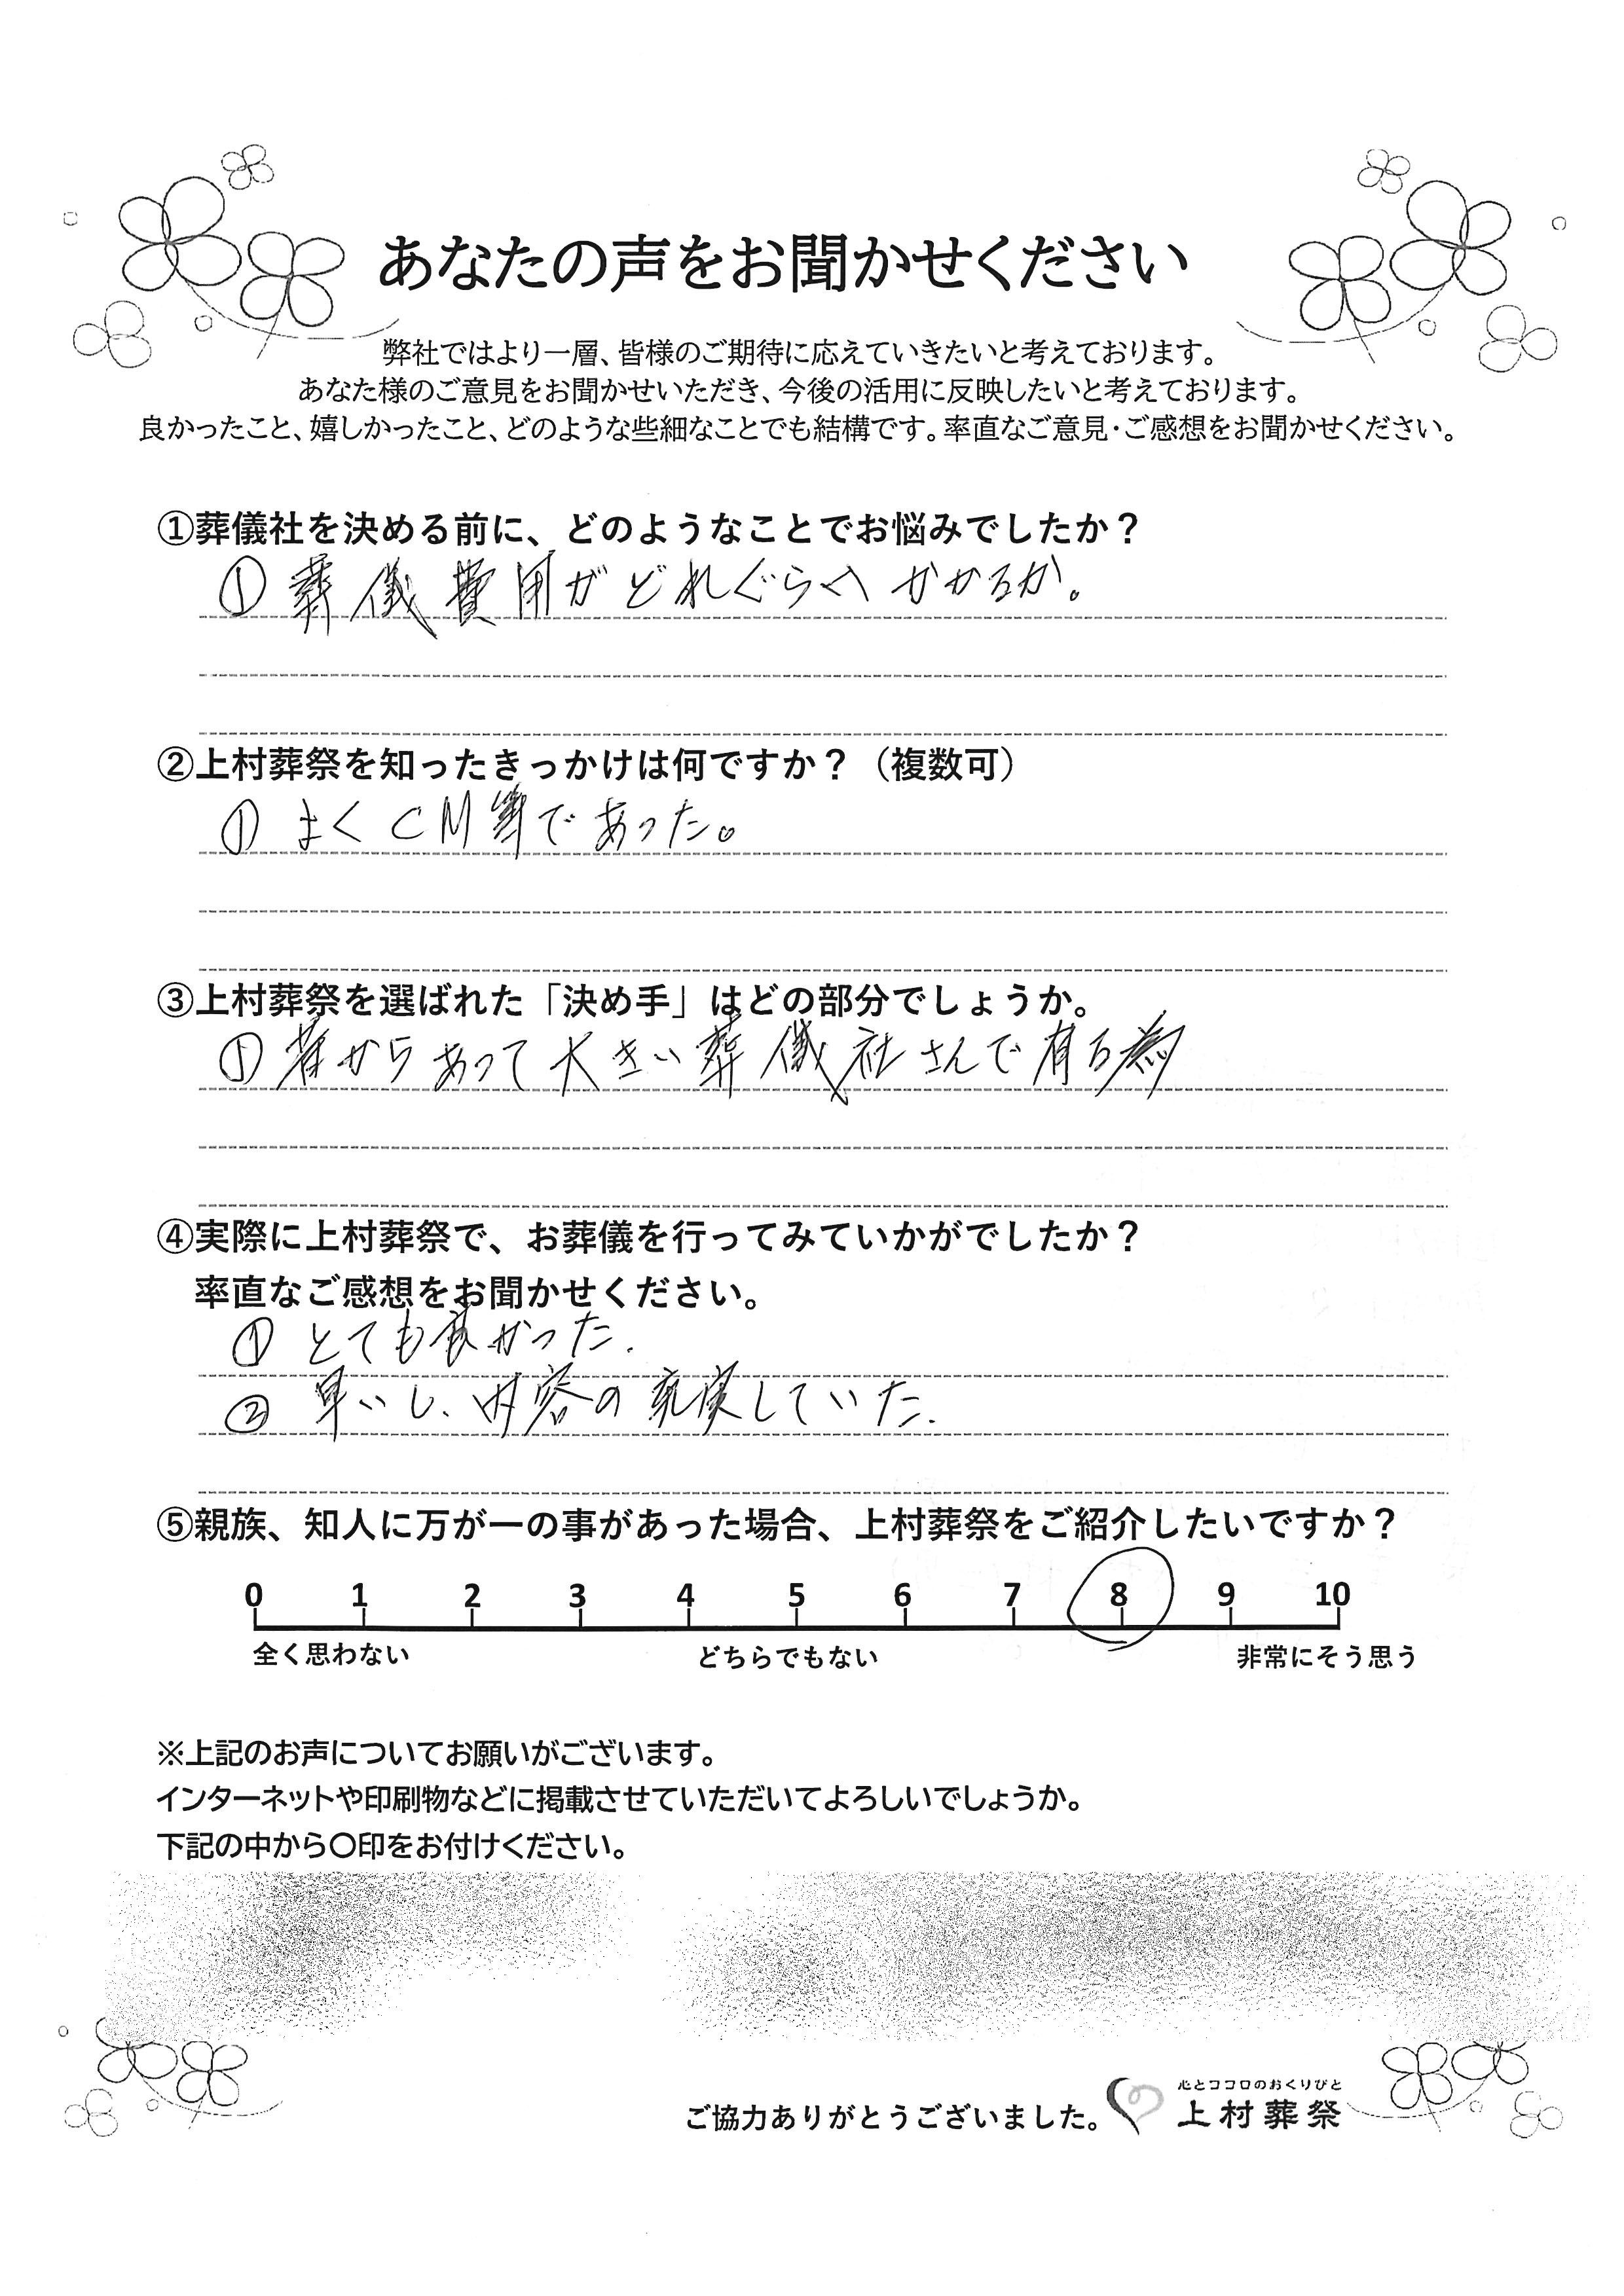 あなたの声をお聞かせください
弊社ではより一層、皆様のご期待に応えていきたいと考えております。
あなた様のご意見をお聞かせいただき、今後の活用に反映したいと考えております。
良かったこと、嬉しかったこと、どのような些細なことでも結構です。率直なご意見・ご感想をお聞かせください。
①葬儀社を決める前に、どのようなことでお悩みでしたか？
① 葬儀費用がどれぐらいかかるか。
②上村葬祭を知ったきっかけは何ですか？（複数可）
① よくCM等であった。
③上村葬祭を選ばれた「決め手」はどの部分でしょうか。
① 昔からあって大きい葬儀社さんで有る為
④実際に上村葬祭で、お葬儀を行ってみていかがでしたか？
率直なご感想をお聞かせください。
① とても良かった.
② 早いし、内容の充実していた.
⑤親族、知人に万が一の事があった場合、上村葬祭をご紹介したいですか？
0 1 2 3 4 5 6 7 8 9 10
全く思わない どちらでもない 非常にそう思う
※上記のお声についてお願いがございます。
インターネットや印刷物などに掲載させていただいてよろしいでしょうか。
下記の中から〇印をお付けください。
心とココロのおくりびと
ご協力ありがとうございました。 上村葬祭